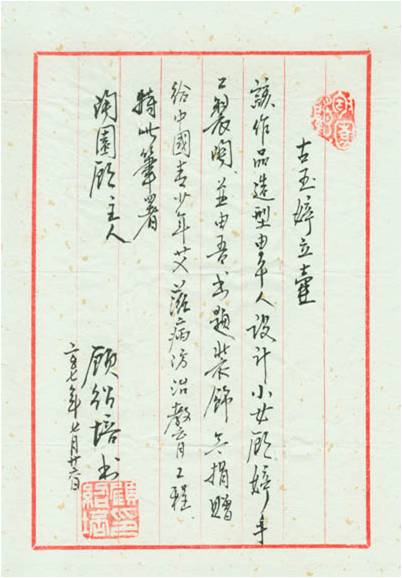 古玉婷立壺
該作品造型由本人設计小女顾婷手
工製陶、並由吾书題裝飾并捐贈
给中國青少年艾滋病防治教育工程
特此筆署
陶園顾主人
顾绍培书
二〇〇七年七月廿六日
顧紹培印